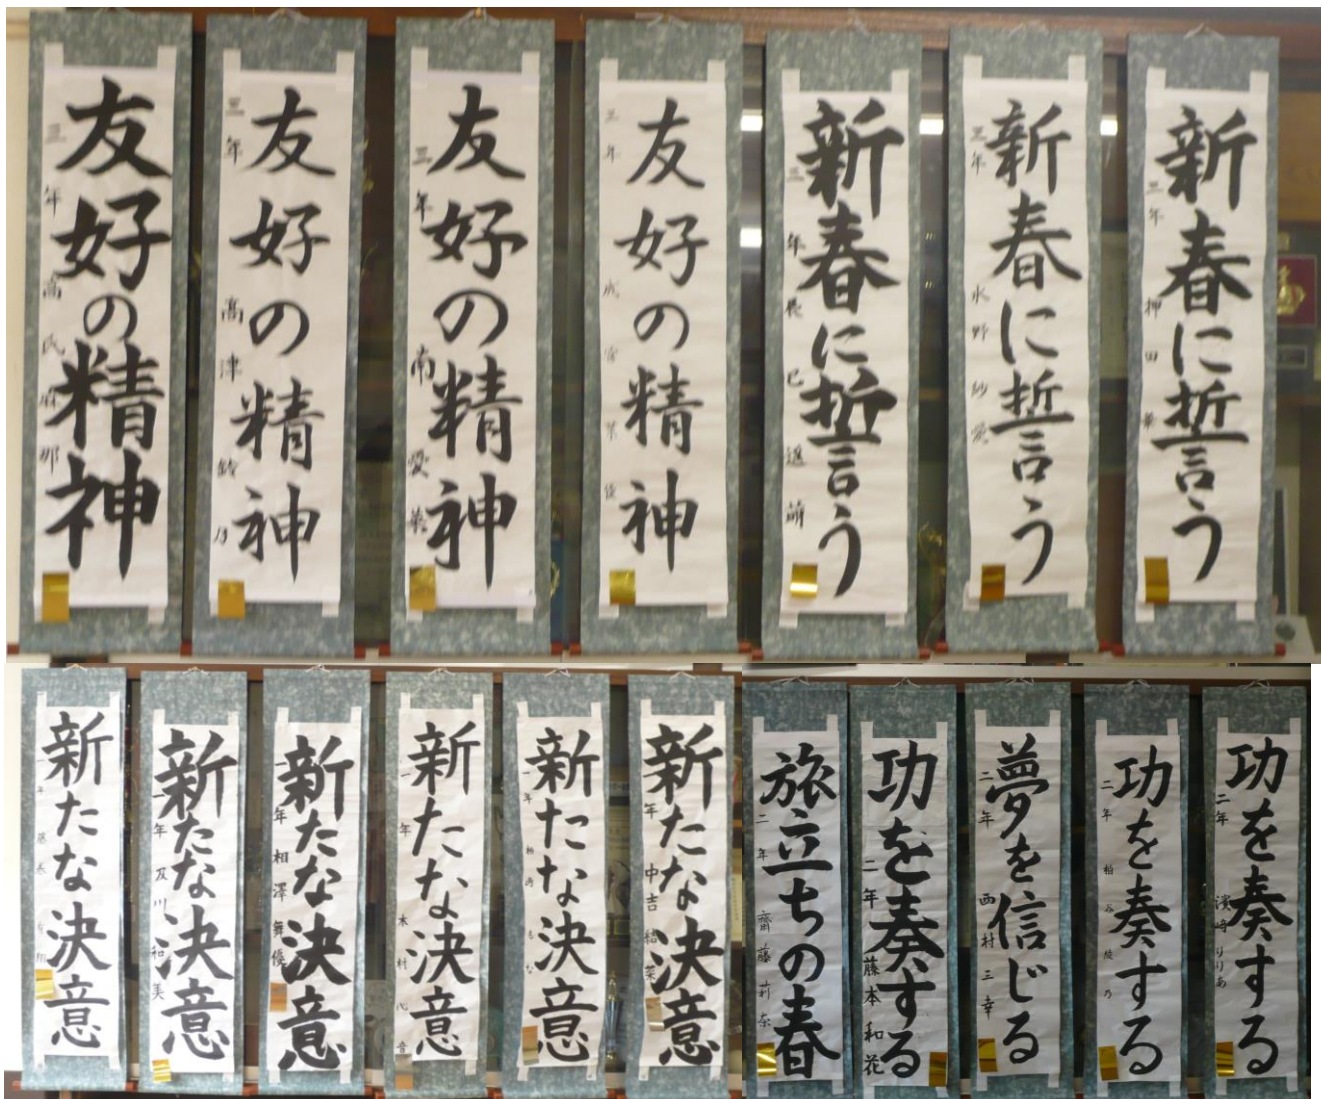 友好の精神
三年 高氏麻那
友好の精神
三年 高津鈴乃
友好の精神
三年 南愛菜
友好の精神
三年 成宮
新春に誓う
三年
新春に誓う
三年 水野紗愛
新春に誓う
三年 押田
新たな決意
一年
新たな決意
一年 及川和美
新たな決意
一年 相澤舞優
新たな決意
一年 木村心音
新たな決意
一年
新たな決意
一年 中吉結菜
旅立ちの春
二年 齋藤莉奈
功を奏する
二年 藤本和花
夢を信じる
二年 西村三幸
功を奏する
二年
功を奏する
二年 濱崎りりあ